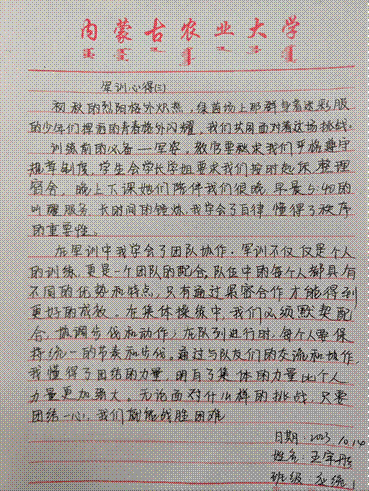 内蒙古农业大学
军训心得(三)
初秋的烈阳格外炽热，绿茵场上那群身着迷彩服
的少年们挥洒的青春格外闪耀，我们共同面对着这场挑战。
训练前的必备一军容，教官要求我们严格遵守
规章制度，学生会学长学姐要求我们按时起床整理
宿舍，晚上下课她们陪伴我们很晚，早晨5:40的
叫醒服务，长时间的锤炼，我学会了自律，懂得了秩序
的重要性。
在军训中我学会了团队协作。军训不仅仅是个人
的训练，更是一个团队的配合，队伍中的每个人都具有
不同的优势和特点，只有通过紧密合作才能得到
更好的成效。在集体操练中，我们必须默契配
合，协调步伐和动作；在队列进行时，每个人要保
持统一的节奏和步伐。通过与队友们的交流和协作，
我懂得了团结的力量，明白了集体的力量比个人
力量更加强大。无论面对什么样的挑战，只要
团结一心，我们就能战胜困难
日期：2023.10.10
姓名：王宇
班级：